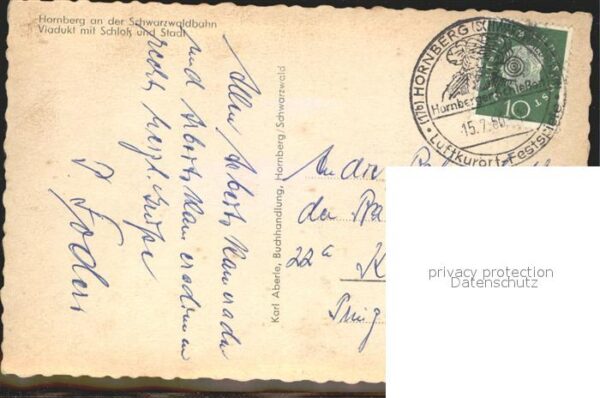 Hornberg an der Schwarzwaldbahn
Viadukt mit Schloß und Stadt
Allen Arbeitskameraden
und Arbeitskameradinnen
recht herzl. Grüße
Karl Aberle, Buchhandlung, Hornberg/Schwarzwald
(17b) HORNBERG
Hornberger
15.7.60
Luftkurort-Festspiel
10
An die
der
22a K
privacy protection
Datenschutz